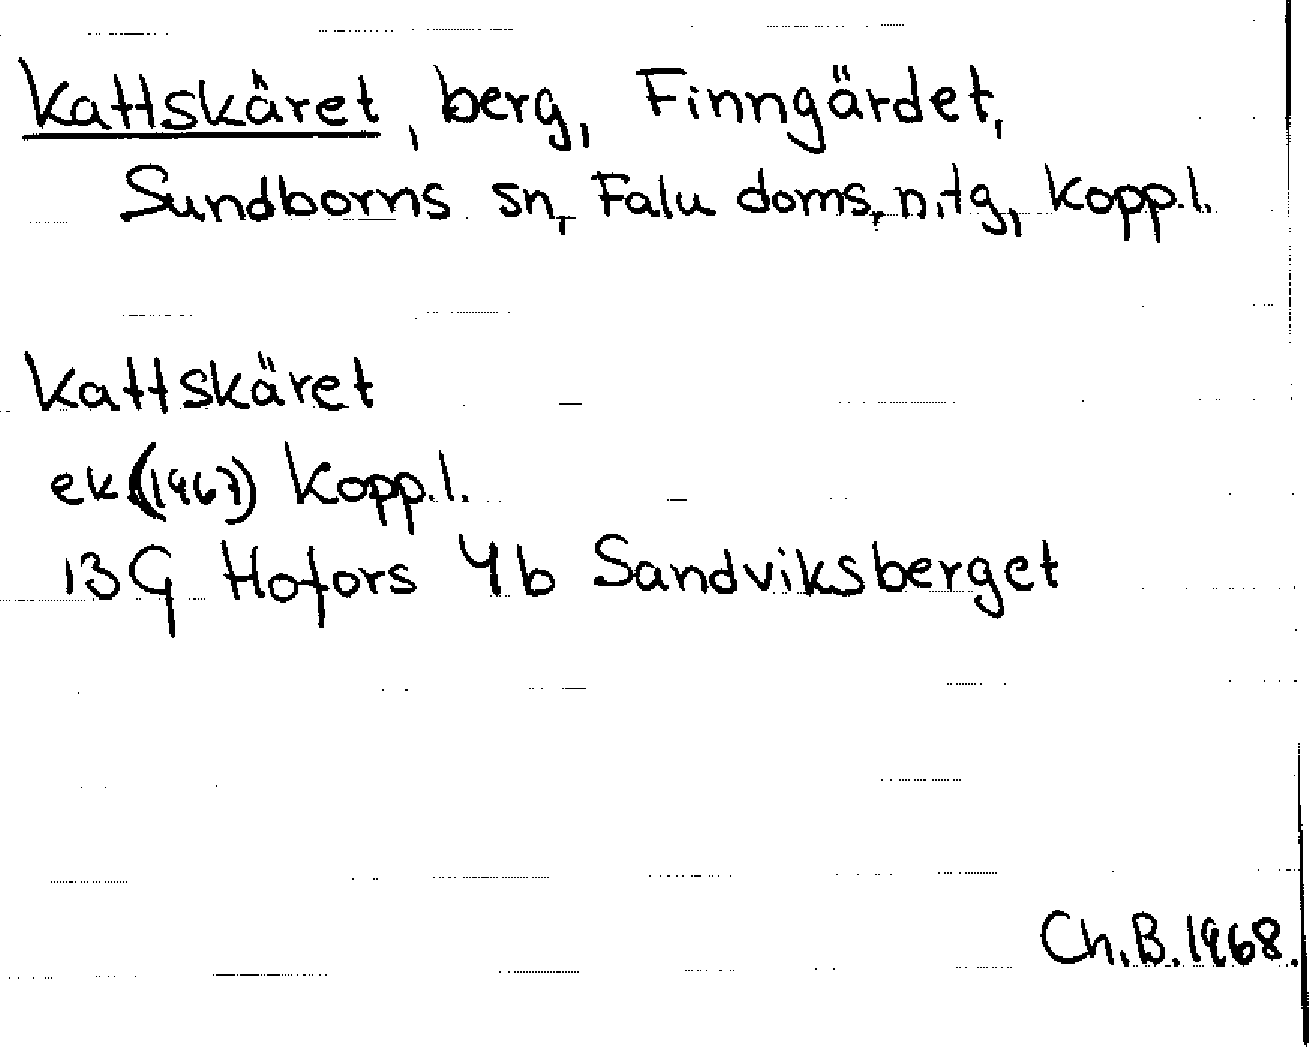 Kattskäret, berg, Finngärdet,
Sundborns sn, Falu doms. n. tg, Kopp.l.
Kattskäret
ek (1967) Kopp.l.
13G Hofors 4b Sandviksberget
Ch.B. 1968.